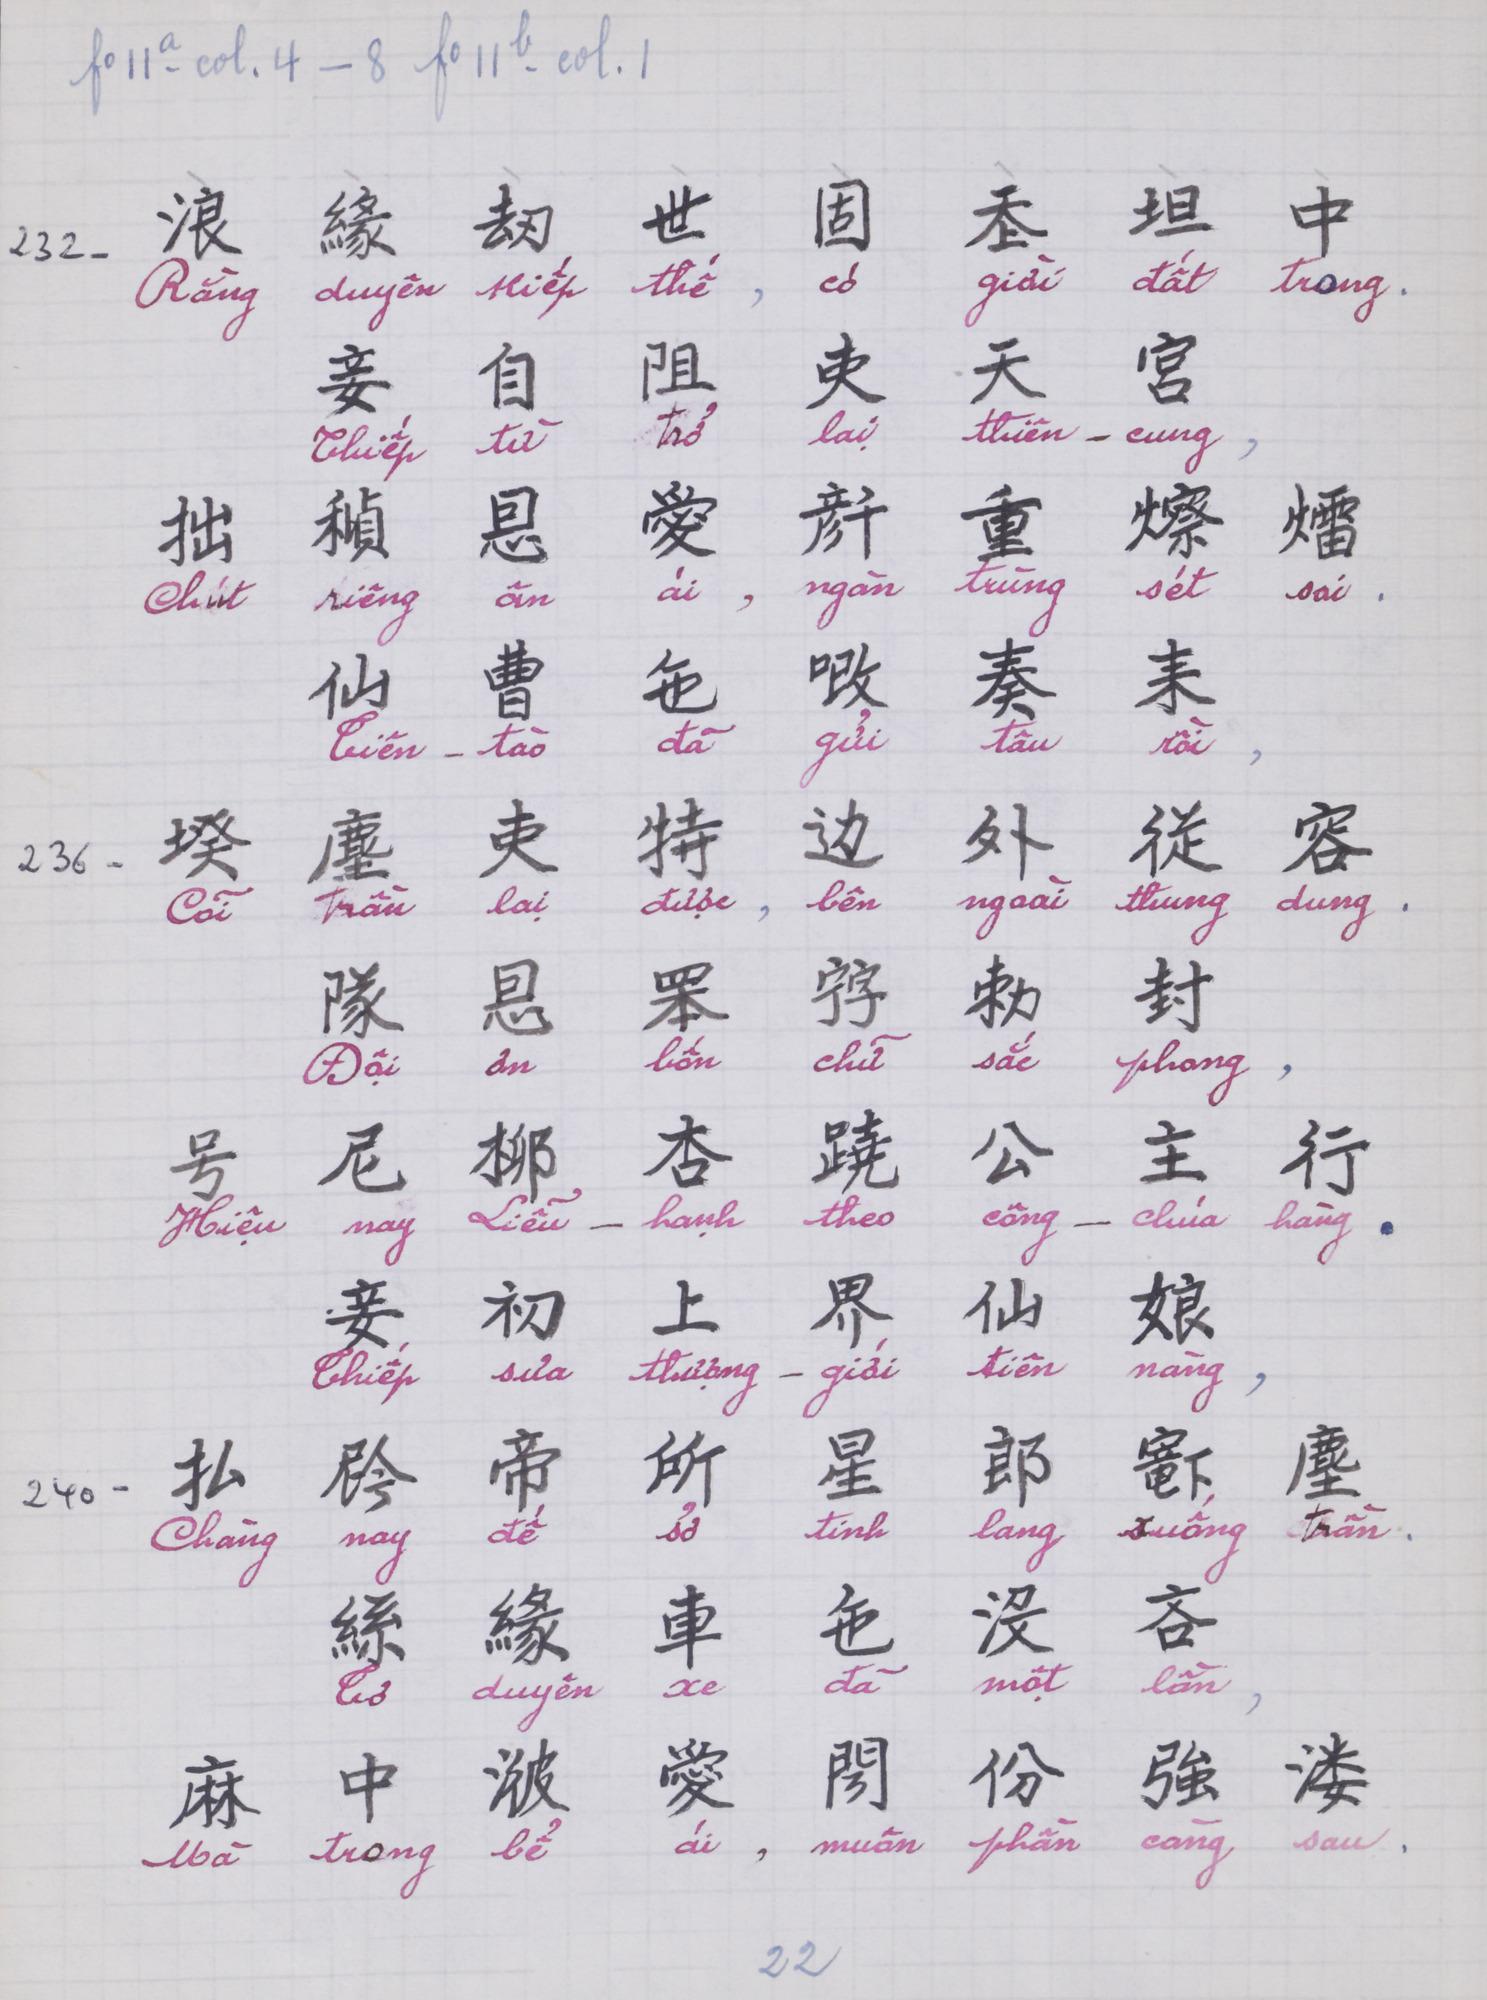 fº 11ª col. 4 – 8 fº 11ᵇ col. 1
232- 浪 緣 刼 世 固 𡗶 坦 中
Rằng duyên kiếp thế, có giời đất trong.
妾 自 阻 吏 天 宮
Thiếp từ trở lại thiên-cung,
拙 𥠭 恩 愛 𠦳 重 𤐝 𤑭
Chút riêng ân ái, ngàn trùng sét soi.
仙 曹 㐌 𠳚 奏 耒
Tiên-tào đã gửi tâu rồi,
236- 堗 塵 吏 特 边 外 從 容
Cõi trần lại được, bên ngoài thung dung.
隊 恩 𦊚 𡨸 勅 封
Đội ơn bốn chữ sắc phong,
号 尼 柳 杏 蹺 公 主 行
Hiệu nay Liễu-hạnh theo công-chúa hàng.
妾 初 上 界 仙 娘
Thiếp sưa thượng-giới tiên nàng,
240- 払 𫢩 帝 所 星 郎 𡨺 塵
Chàng nay đế sở tinh lang xuống trần.
絲 緣 車 㐌 没 吝
Tơ duyên xe đã một lần,
麻 中 𣷷 愛 閍 份 強 溇
Mà trong bể ái, muôn phần càng sau.
22